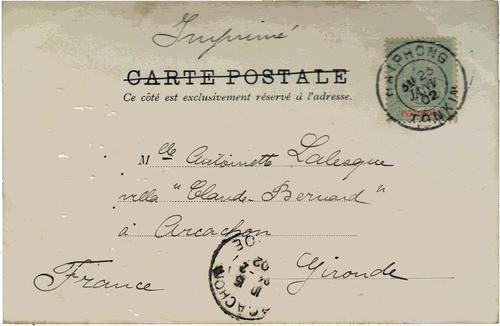 Imprimé
CARTE POSTALE
Ce côté est exclusivement réservé à l'adresse.
HAIPHONG
25
JANV
02
TONKIN
Mlle Antoinette Lalesque
villa "Claude-Bernard"
à Arcachon
Gironde
France
ARCACHON
02